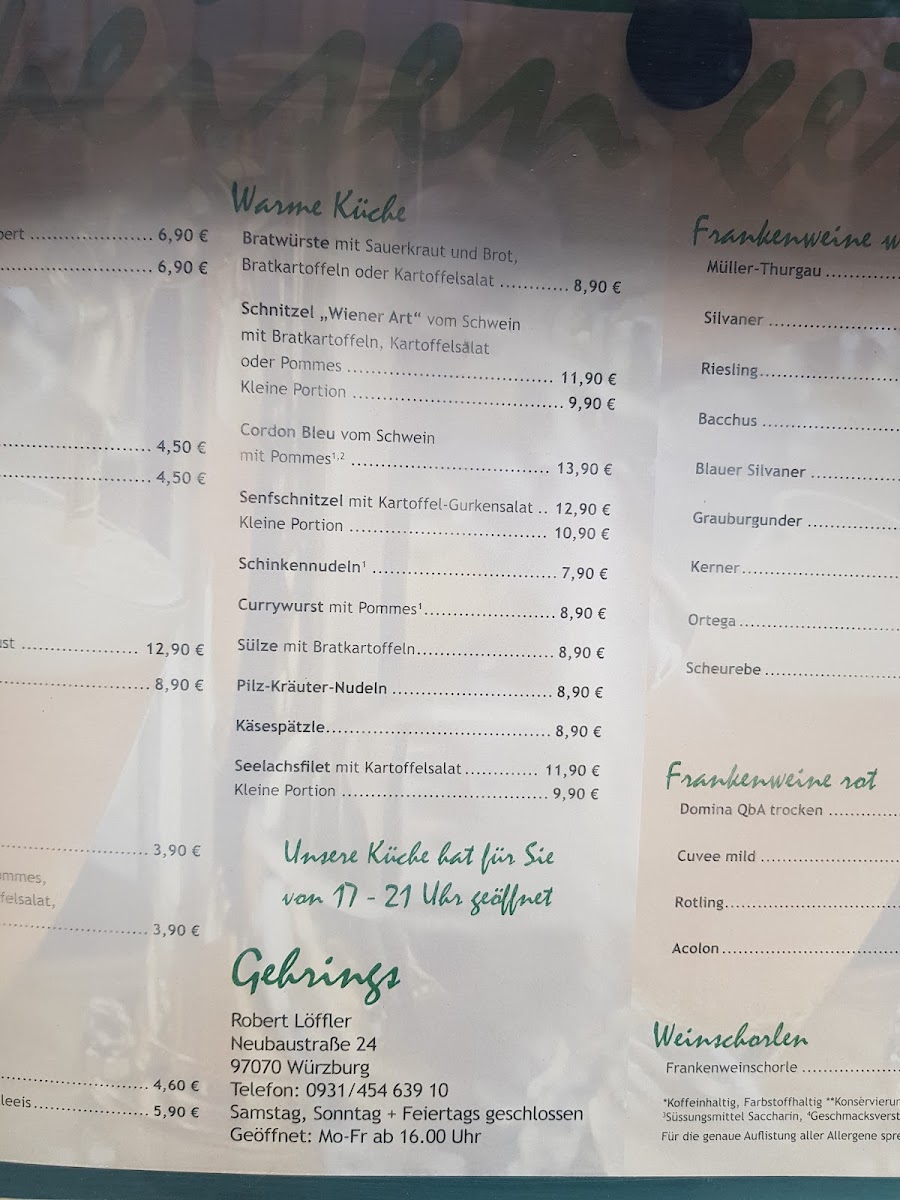 6,90 €
6,90 €
4,50 €
4,50 €
12,90 €
8,90 €
3,90 €
3,90 €
4,60 €
5,90 €
Warme Küche
Bratwürste mit Sauerkraut und Brot,
Bratkartoffeln oder Kartoffelsalat ............ 8,90 €
Schnitzel „Wiener Art“ vom Schwein
mit Bratkartoffeln, Kartoffelsalat
oder Pommes .................................... 11,90 €
Kleine Portion ..................................... 9,90 €
Cordon Bleu vom Schwein
mit Pommes¹,² ................................... 13,90 €
Senfschnitzel mit Kartoffel-Gurkensalat .. 12,90 €
Kleine Portion ................................... 10,90 €
Schinkennudeln¹ ................................ 7,90 €
Currywurst mit Pommes¹....................... 8,90 €
Sülze mit Bratkartoffeln........................ 8,90 €
Pilz-Kräuter-Nudeln ............................ 8,90 €
Käsespätzle....................................... 8,90 €
Seelachsfilet mit Kartoffelsalat............. 11,90 €
Kleine Portion .................................... 9,90 €
Unsere Küche hat für Sie
von 17 - 21 Uhr geöffnet
Gehrings
Robert Löffler
Neubaustraße 24
97070 Würzburg
Telefon: 0931/454 639 10
Samstag, Sonntag + Feiertags geschlossen
Geöffnet: Mo-Fr ab 16.00 Uhr
Frankenweine
Müller-Thurgau
Silvaner
Riesling
Bacchus
Blauer Silvaner
Grauburgunder
Kerner
Ortega
Scheurebe
Frankenweine rot
Domina QbA trocken
Cuvee mild
Rotling
Acolon
Weinschorlen
Frankenweinschorle
*Koffeinhaltig, Farbstoffhaltig **Konservierun
³Süssungsmittel Saccharin, ⁴Geschmacksverst
Für die genaue Auflistung aller Allergene spre